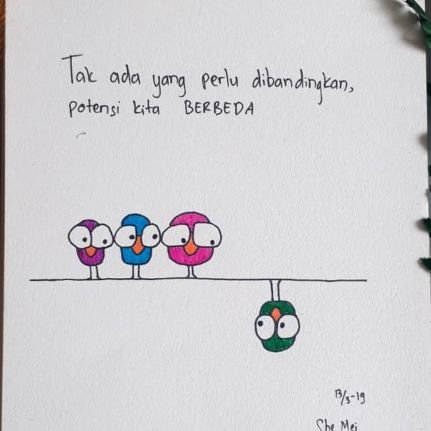 Tak ada yang perlu dibandingkan,
potensi kita BERBEDA
13/3-19
She Mei